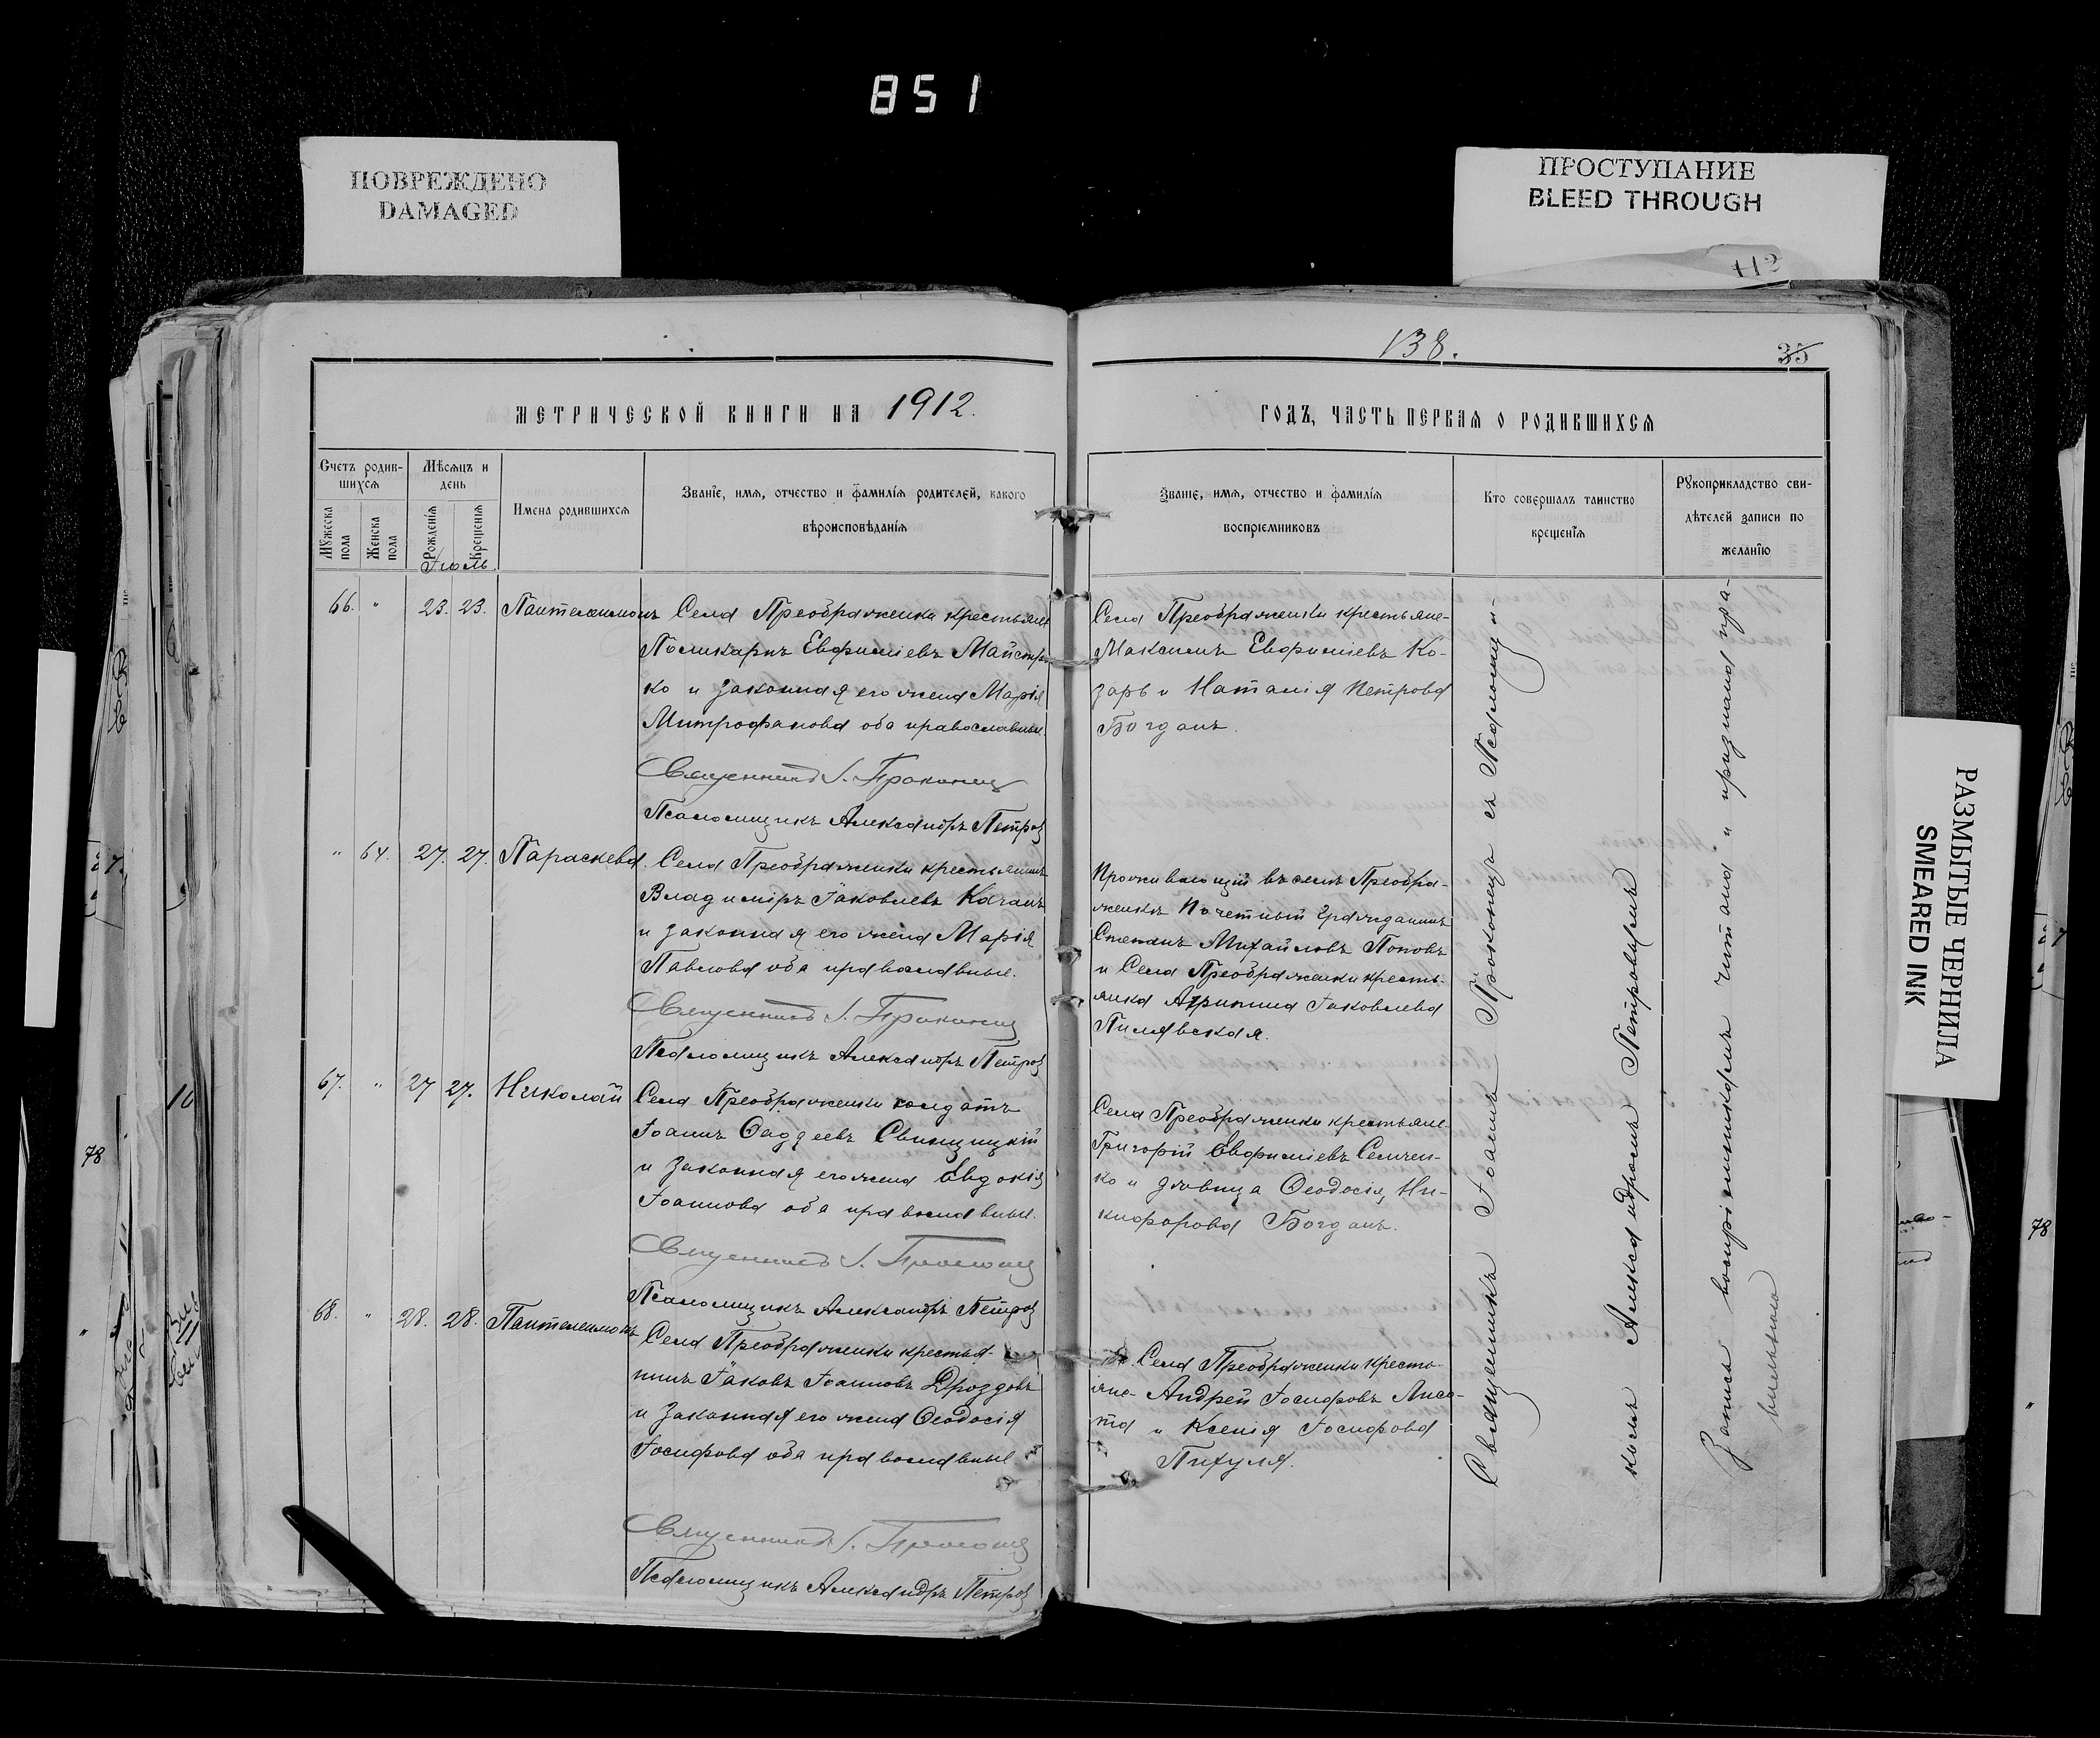 851
ПОВРЕЖДЕНО
DAMAGED
ПРОСТУПАНИЕ
BLEED THROUGH
112
РАЗМЫТЫЕ ЧЕРНИЛА
SMEARED INK
138.
35
МЕТРИЧЕСКОЙ КНИГИ НА 1912.
ГОДЪ, ЧАСТЬ ПЕРВАЯ О РОДИВШИХСЯ
Счетъ родив-
шихся
Мужеска пола
Женска пола
Мѣсяцъ и
день
Рожденія
Крещенія
Іюль.
Имена родившихся
Званіе, имя, отчество и фамилія родителей, какого
вѣроисповѣданія
Званіе, имя, отчество и фамилія
воспріемниковъ
Кто совершалъ таинство
крещенія
Рукоприкладство сви-
дѣтелей записи по
желанію
66. " 23. 23. Пантелеимонъ
Села Преображенки крестьяне
Поликарпъ Евфиміевъ Майстр
ко и законная его жена Марія
Митрофанова оба православные.
Священникъ І. Прокопец
Псаломщикъ Александръ Петров
Села Преображенки крестьяне-
Максимъ Евфиміевъ Ко-
заръ и Наталія Петрова
Богданъ.
" 64. 27. 27. Параскева.
Села Преображенки крестьянинъ
Владиміръ Іаковлевъ Качанъ
и законная его жена Марія
Павлова оба православные.
Священникъ І. Прокопец
Псаломщикъ Александръ Петров
Проживающій въ селѣ Преобра-
женкѣ Почетный Гражданинъ
Степанъ Михайловъ Поповъ
и Села Преображенки кресть-
янка Агрипина Іаковлева
Пилявская.
67. " 27 27. Николай
Села Преображенки солдатъ
Іоаннъ Фаддеевъ Свинцицкій
и законная его жена Евдокія
Іоаннова оба православные.
Священникъ І. Прокопец
Псаломщикъ Александръ Петров
Села Преображенки крестьяне-
Григорій Евфиміевъ Семен-
ко и дѣвица Феодосія Ни-
кифорова Богданъ.
68. " 28. 28. Пантелеимонъ
Села Преображенки крестья-
нинъ Іаковъ Іоанновъ Дроздовъ
и законная его жена Феодосія
Іосифова оба православные
Священникъ І. Прокопец
Псаломщикъ Александръ Петров
Села Преображенки кресть-
яне- Андрей Іосифовъ Лиса-
та и Ксенія Іосифова
Пихуля.
Священникъ Іоаннъ Прокопецъ съ Псаломщи-
комъ Александромъ Петровымъ
Запись воспріемникомъ читана и признана пра-
вильною
78
10
78